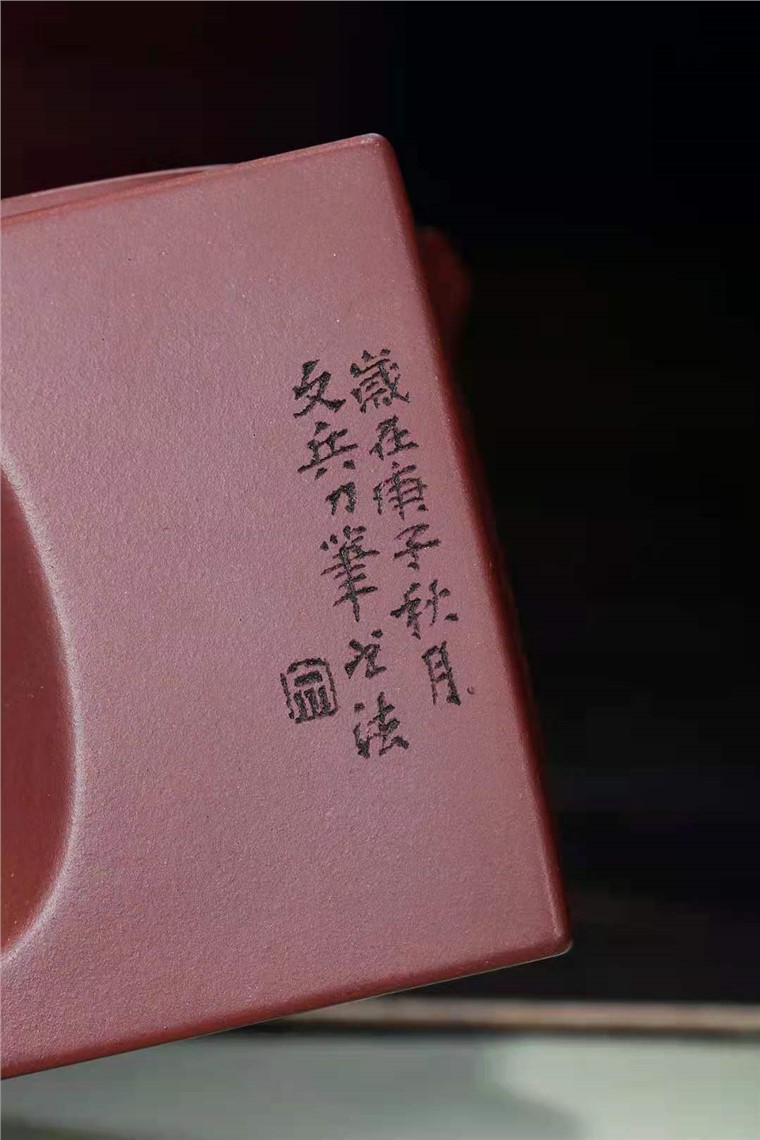 歲在庚子秋月
文兵刀筆书法